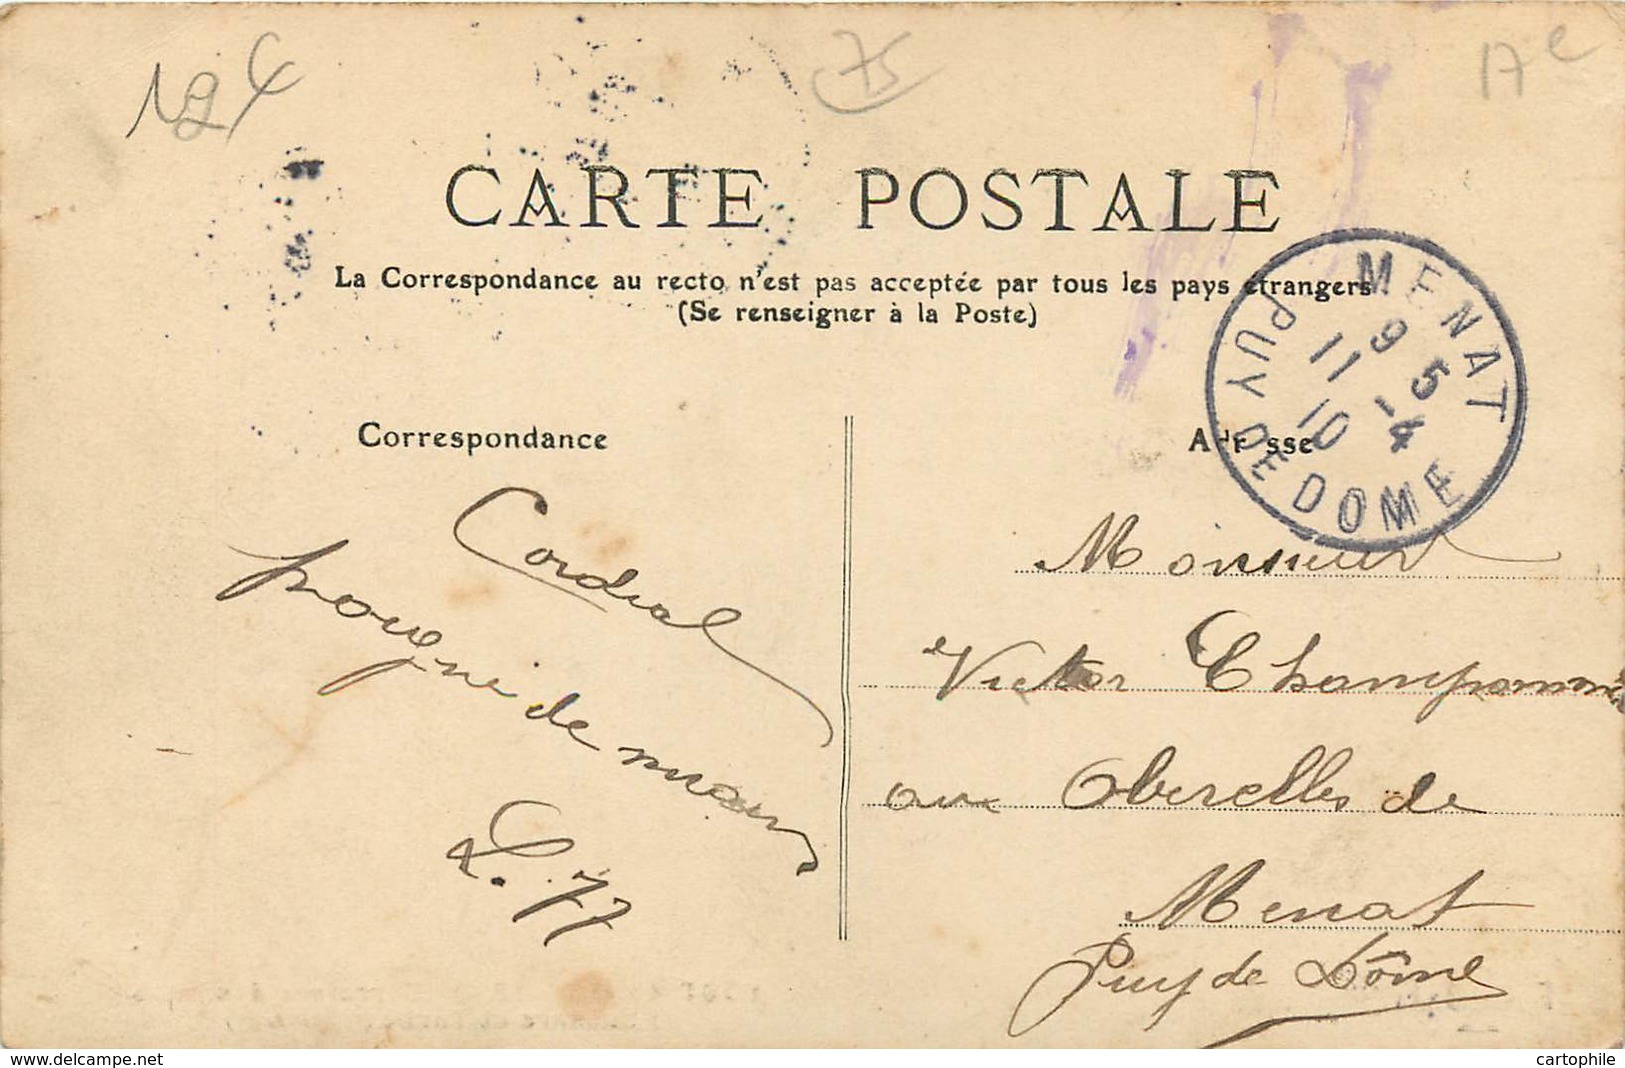 124
75
A e
CARTE POSTALE
La Correspondance au recto n'est pas acceptée par tous les pays étrangers
(Se renseigner à la Poste)
MENAT
9 5
11 - 4
10
PUY DE DOME
Correspondance
Adresse
Cordial
pougne de main
L.
Monsieur
Victor Champomm
aux Oberelles de
Menat
Puy de Dôme
www.delcampe.net
cartophile